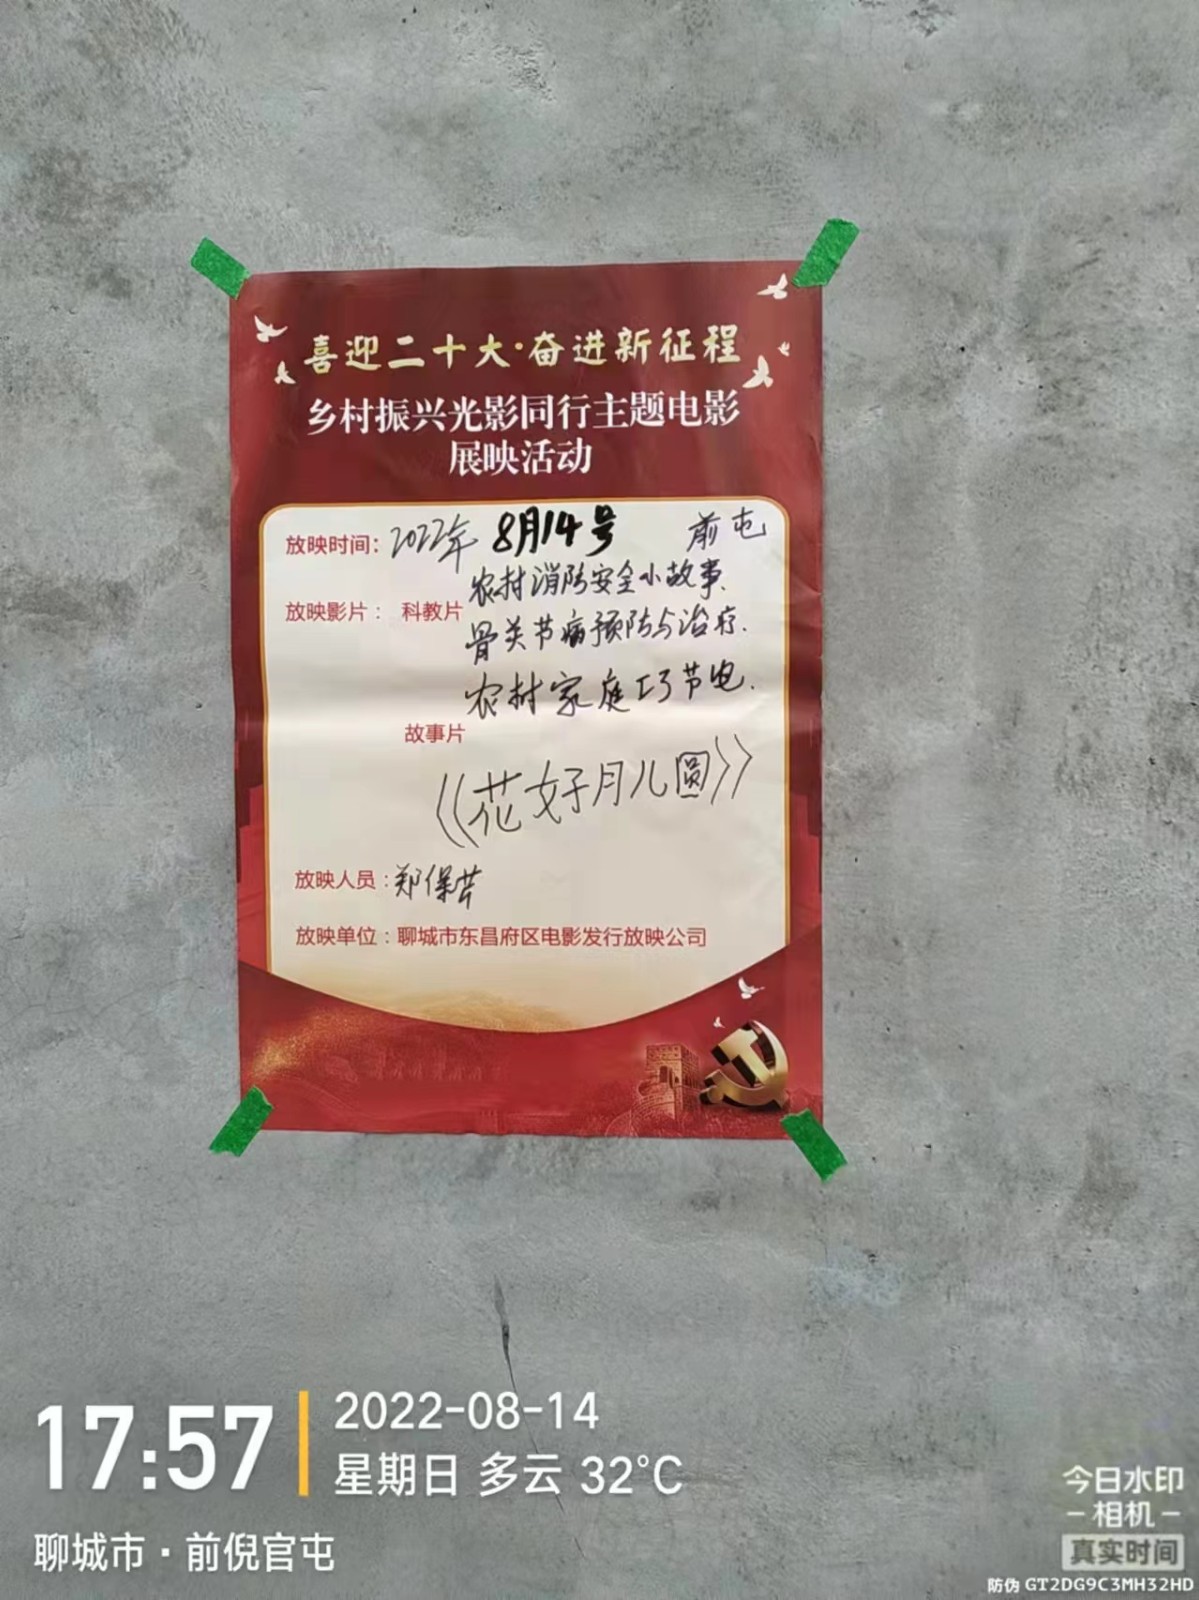 喜迎二十大·奋进新征程
乡村振兴光影同行主题电影
展映活动
放映时间：2022年 8月14号 前屯
农村消防安全小故事.
放映影片： 科教片
骨关节病预防与治疗.
农村家庭巧节电.
故事片
《花好月儿圆》
放映人员：郑保芹
放映单位：聊城市东昌府区电影发行放映公司
17:57
2022-08-14
星期日 多云 32°C
聊城市·前倪官屯
今日水印
-相机-
真实时间
防伪 GT2DG9C3MH32HD